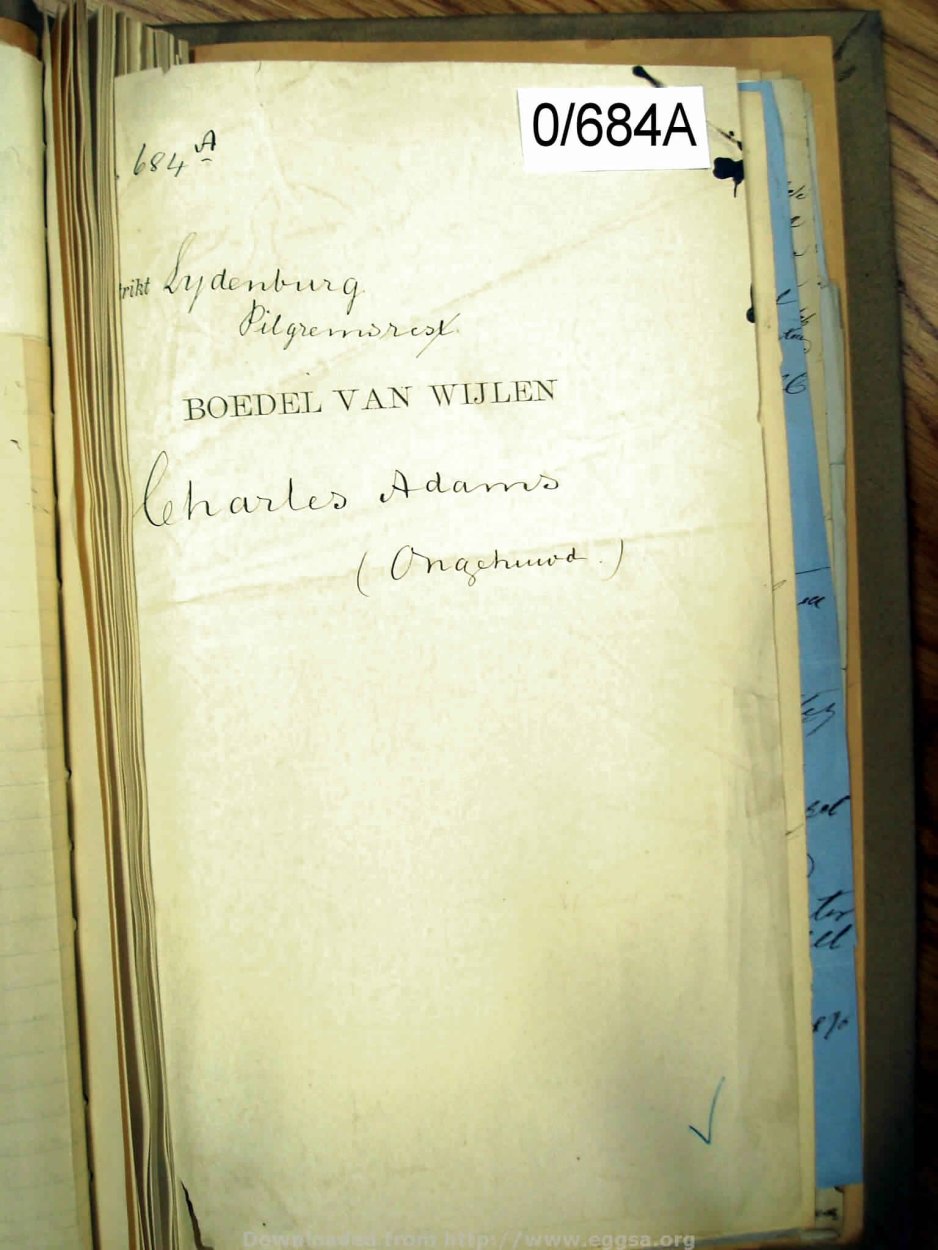 0/684A
684 A
trikt Lydenburg
Pilgremsrest
BOEDEL VAN WIJLEN
Charles Adams
(Ongehuwd.)
Downloaded from http://www.eggsa.org